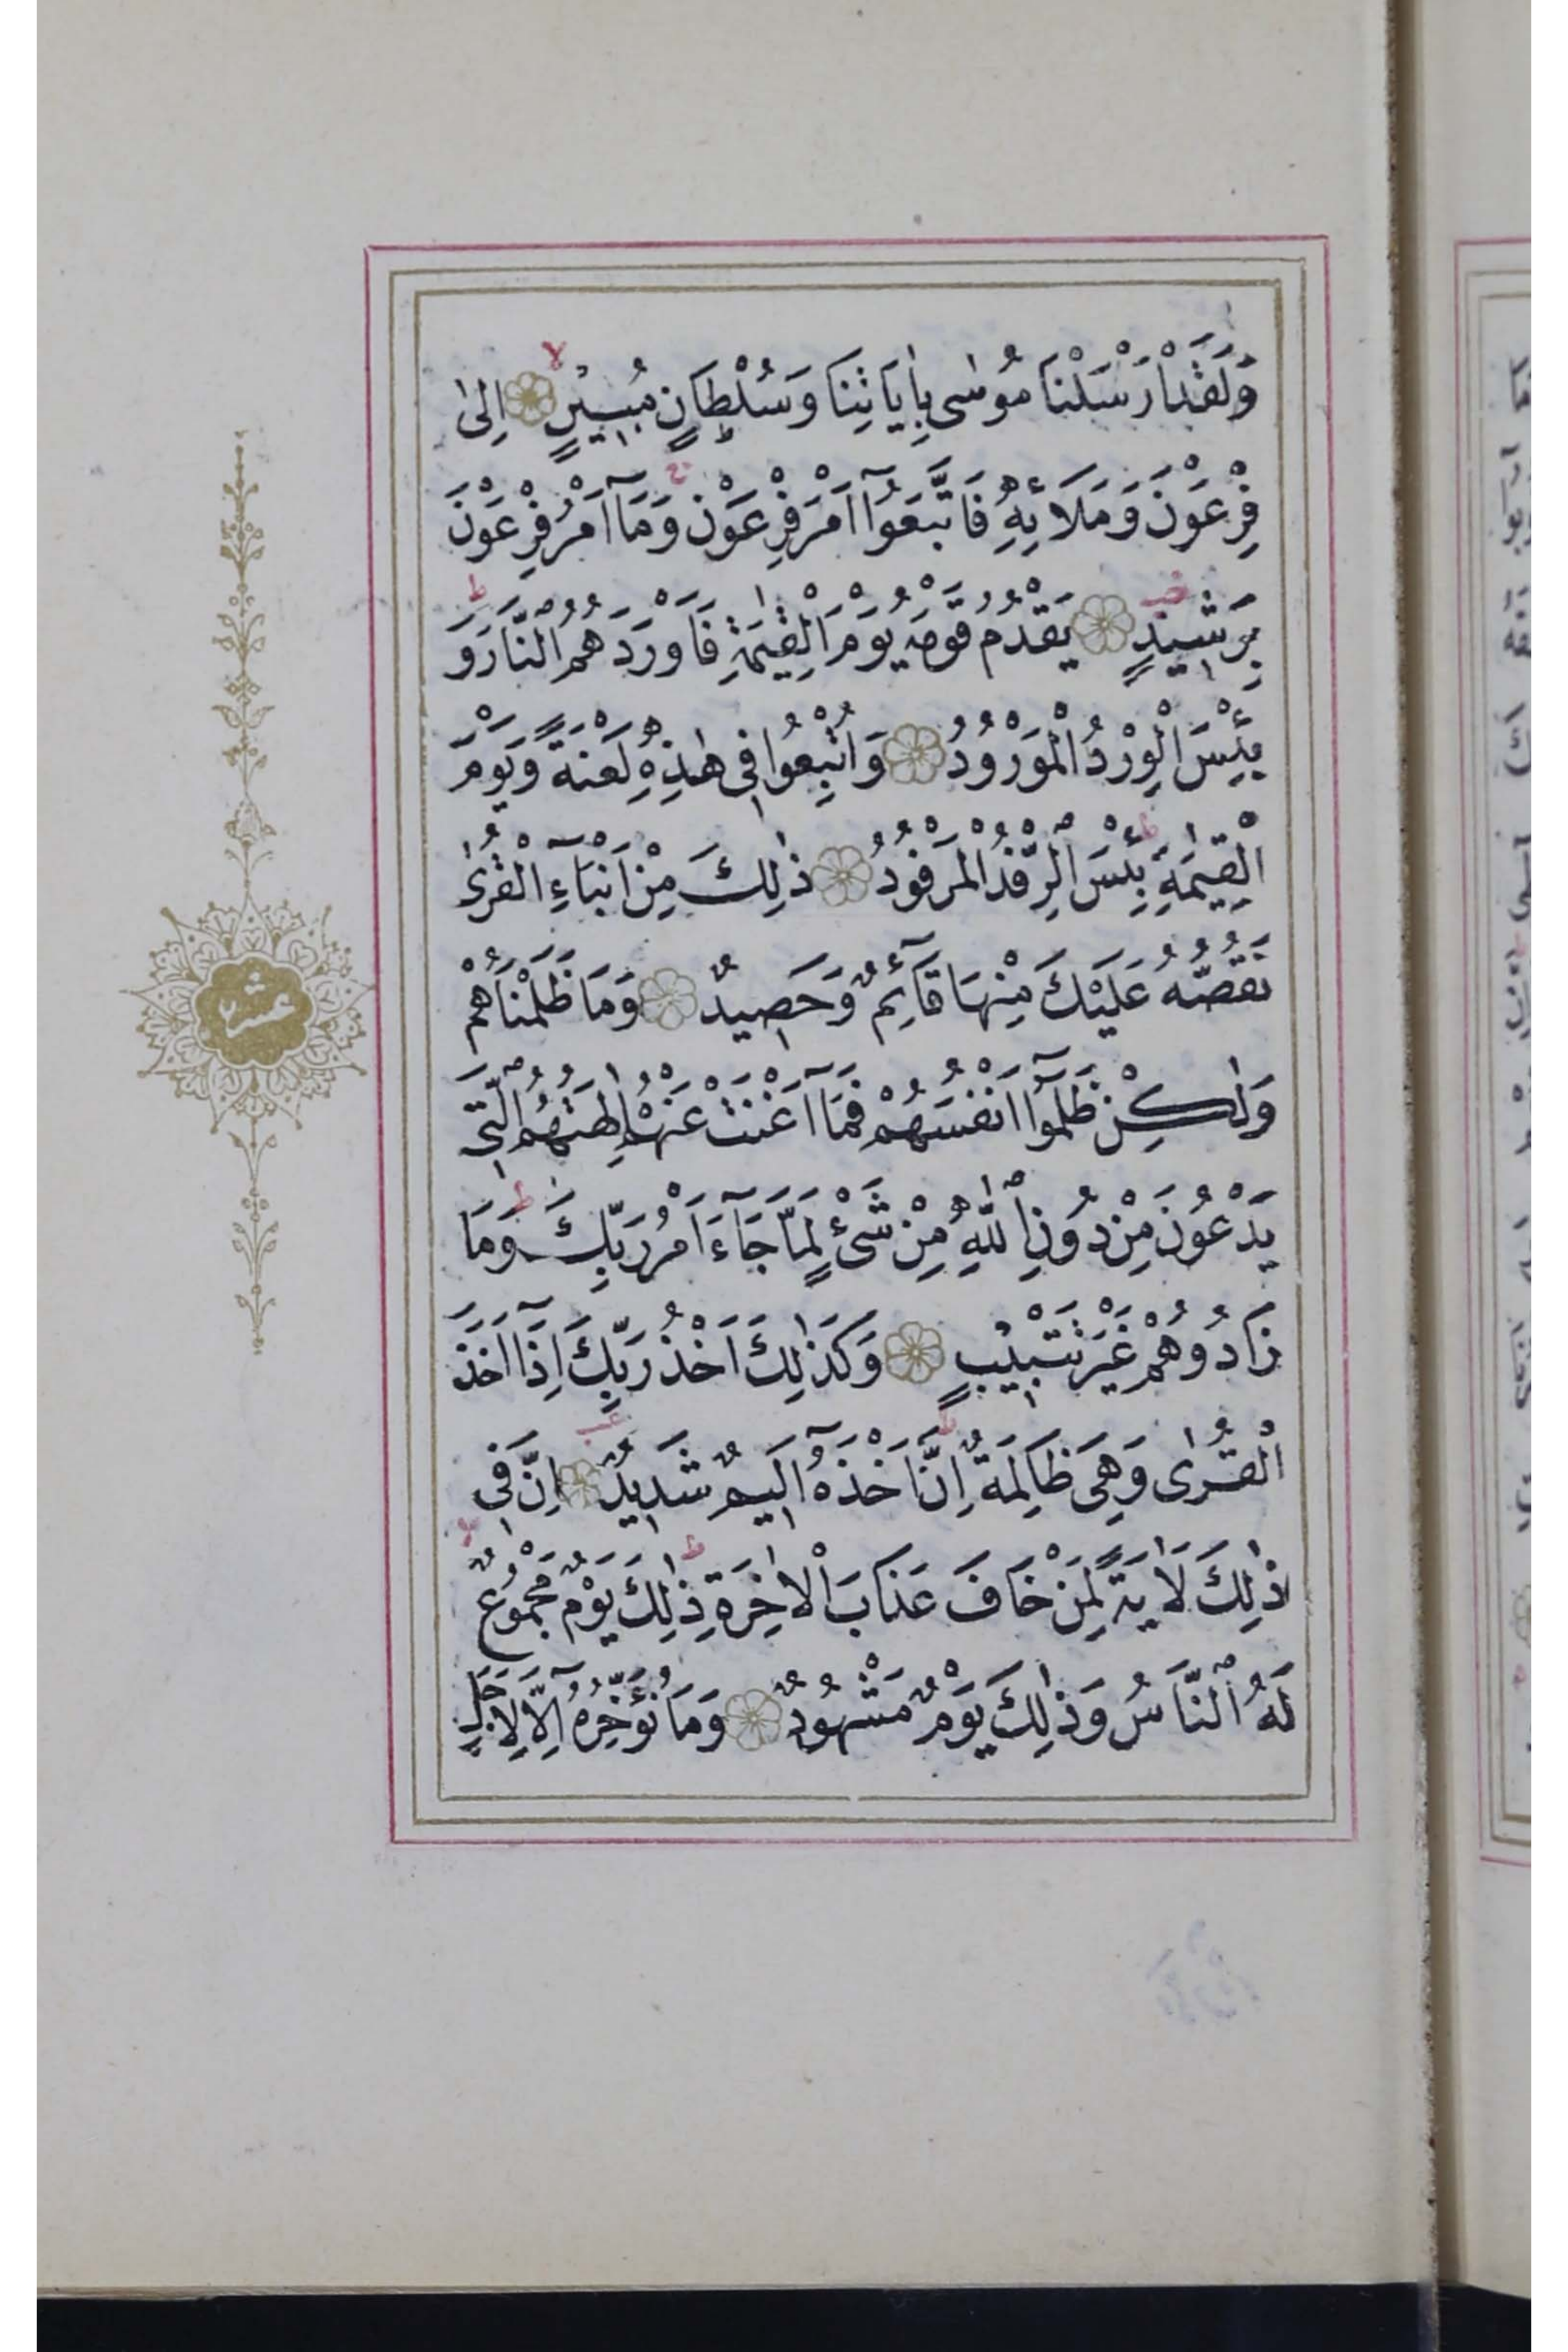 وَلَقَدْ اَرْسَلْنَا مُوسٰى بِاٰيَاتِنَا وَسُلْطَانٍ مُبِينٍ لا اِلٰى
فِرْعَوْنَ وَمَلَائِهِ فَاتَّبَعُوا اَمْرَ فِرْعَوْنَ وَمَآ اَمْرُ فِرْعَوْنَ
بِرَشِيدٍ يَقْدُمُ قَوْمَهُ يَوْمَ الْقِيٰمَةِ فَاَوْرَدَهُمُ النَّارَ ط وَ
بِئْسَ الْوِرْدُ الْمَوْرُودُ وَاُتْبِعُوا فِى هٰذِهِ لَعْنَةً وَيَوْمَ
الْقِيٰمَةِ ط بِئْسَ الرِّفْدُ الْمَرْفُودُ ذٰلِكَ مِنْ اَنْبَآءِ الْقُرٰى
نَقُصُّهُ عَلَيْكَ مِنْهَا قَآئِمٌ وَحَصِيدٌ وَمَا ظَلَمْنَاهُمْ
عشر
وَلٰكِنْ ظَلَمُٓوا اَنْفُسَهُمْ فَمَآ اَغْنَتْ عَنْهُمْ اٰلِهَتُهُمُ الَّتِى
يَدْعُونَ مِنْ دُونِ اللّٰهِ مِنْ شَىْءٍ لَمَّا جَآءَ اَمْرُ رَبِّكَ ط وَمَا
زَادُوهُمْ غَيْرَ تَتْبِيبٍ وَكَذٰلِكَ اَخْذُ رَبِّكَ اِذَٓا اَخَذَ
الْقُرٰى وَهِىَ ظَالِمَةٌ ط اِنَّ اَخْذَهُٓ اَلِيمٌ شَدِيدٌ اِنَّ فِى
ذٰلِكَ لَاٰيَةً لِمَنْ خَافَ عَذَابَ الْاٰخِرَةِ ط ذٰلِكَ يَوْمٌ مَجْمُوعٌ لا
لَهُ النَّاسُ وَذٰلِكَ يَوْمٌ مَشْهُودٌ وَمَا نُؤَخِّرُهُٓ اِلَّا لِاَجَلٍ